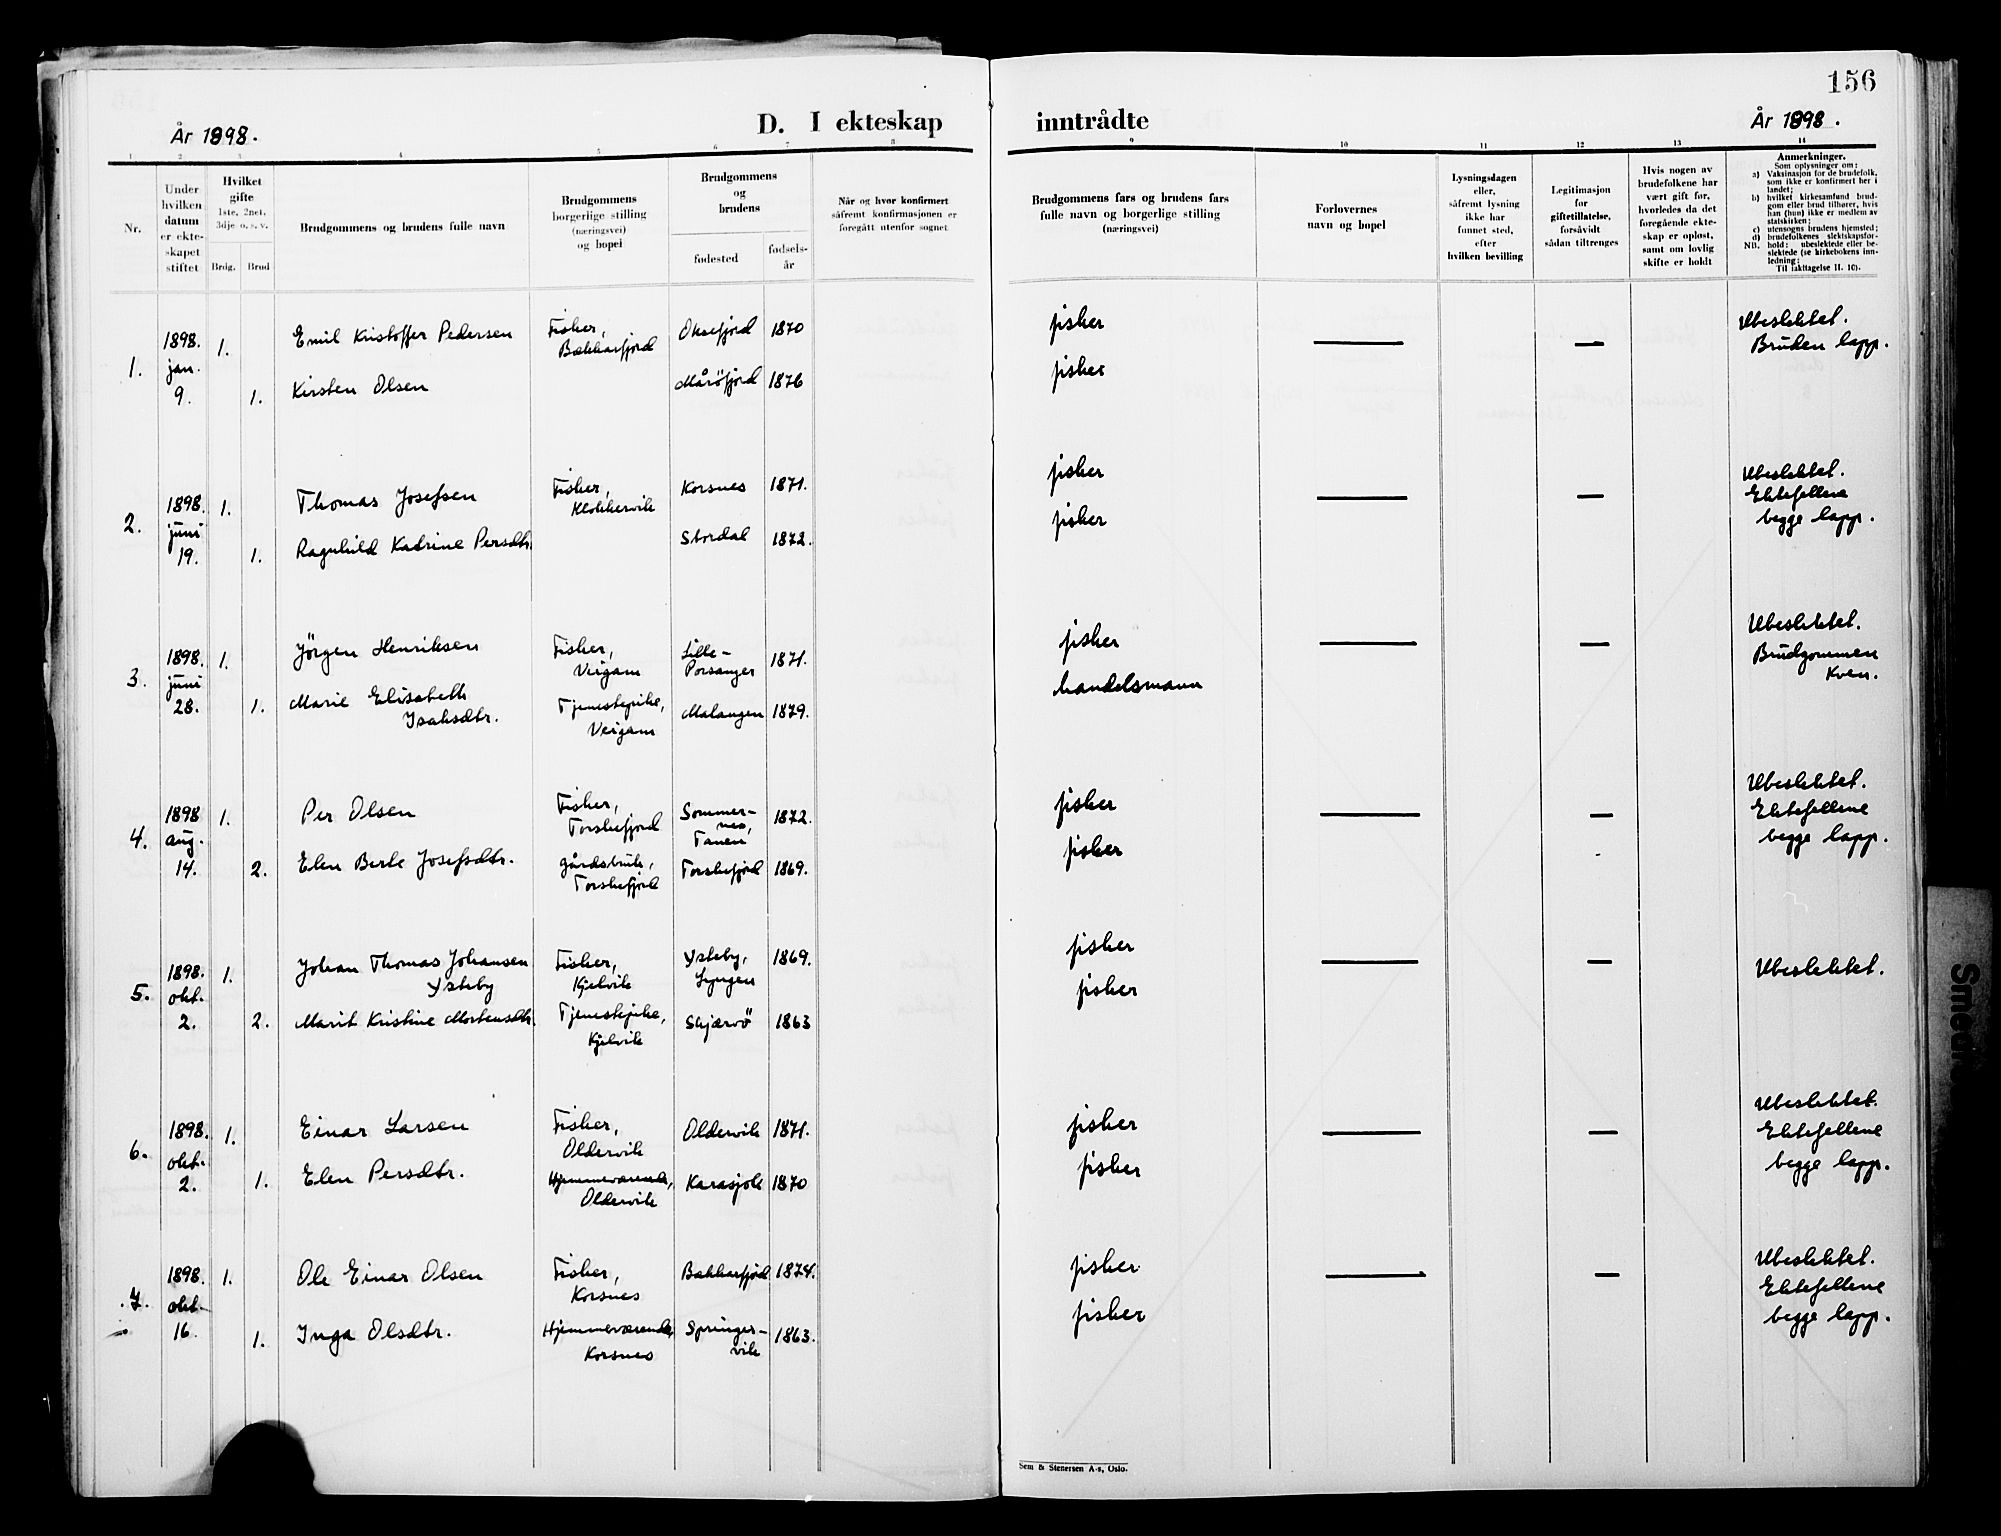 156
År 1898.
D. I ekteskap
inntrådte
År 1898.
1 2 3 4 5 6 7 8 9 10 11 12 13 14
Nr.
Under
hvilken
datum
er ekte-
skapet
stiftet
Hvilket
gifte
1ste, 2net,
3dje o. s. v.
Brdg. Brud
Brudgommens og brudens fulle navn
Brudgommens
borgerlige stilling
(næringsvei)
og bopel
Brudgommens
og
brudens
fødested
fødsels-
år
Når og hvor konfirmert
såfremt konfirmasjonen er
foregått utenfor sognet
Brudgommens fars og brudens fars
fulle navn og borgerlige stilling
(næringsvei)
Forlovernes
navn og bopel
Lysningsdagen
eller,
såfremt lysning
ikke har
funnet sted,
efter
hvilken bevilling
Legitimasjon
for
giftetillatelse,
forsåvidt
sådan tiltrenges
Hvis nogen av
brudefolkene har
vært gift før,
hvorledes da det
foregående ekte-
skap er opløst,
samt om lovlig
skifte er holdt
Anmerkninger.
Som oplysninger om:
a) Vaksinasjon for de brudefolk,
som ikke er konfirmert her i
landet;
b) hvilket kirkesamfund brud-
gom eller brud tilhører, hvis
han (hun) ikke er medlem av
statskirken;
c) utensogns brudens hjemsted;
d) brudefolkenes slektskapsfor-
NB. hold: ubeslektede eller be-
slektede (se kirkebokens inn-
ledning;
Til iakttagelse II. 10).
1.
1898.
jan.
9.
1.
1.
Emil Kristoffer Pedersen
Kirsten Olsen
Fisker,
Bakkarfjord
Oksefjord 1870
Måröfjord 1876
fisker
fisker
Ubeslektet.
Bruden lapp.
2.
1898.
juni
19.
1.
1.
Thomas Josefsen
Ragnhild Katrine Persdtr.
Fisker,
Klokkervik
Korsnes 1871.
Stordal 1872.
fisker
fisker
Ubeslektet.
Ektefellene
begge lapp.
3.
1898.
juni
28.
1.
1.
Jörgen Henriksen
Marie Elisabeth
Isaksdtr.
Fisker,
Veigam
Tjenestepike,
Veigam
Lille-
Porsanger 1871.
Malangen 1879.
fisker
handelsmann
Ubeslektet.
Brudgommen
Kven.
4.
1898
aug.
14.
1.
2.
Per Olsen
Elen Berte Josefsdtr.
Fisker,
Torskefjord
gårdsbruk,
Torskefjord
Sommer-
nes,
Tanen 1872.
Torskefjord 1869.
fisker
fisker
Ubeslektet.
Ektefellene
begge lapp.
5.
1898.
okt.
2.
1.
2.
Johan Thomas Johansen
Ysteby
Marit Kristine Mortensdtr.
Fisker,
Kjelvik
Tjenestepike,
Kjelvik
Ysteby,
Lyngen 1869.
Skjærvö 1863
fisker
fisker
Ubeslektet.
6.
1898.
okt.
2.
1.
1.
Einar Larsen
Elen Persdtr.
Fisker,
Oldervik
Hjemmeværende,
Oldervik
Oldervik 1871.
Karasjok 1870
fisker
fisker
Ubeslektet.
Ektefellene
begge lapp.
7.
1898.
okt.
16.
1.
1.
Ole Einar Olsen
Inga Olsdtr.
Fisker,
Korsnes
Hjemmeværende,
Korsnes
Bakkarfjord 1874.
Springer-
vik 1863.
fisker
fisker
Ubeslektet.
Ektefellene
begge lapp.
Sem & Stenersen A-s, Oslo.